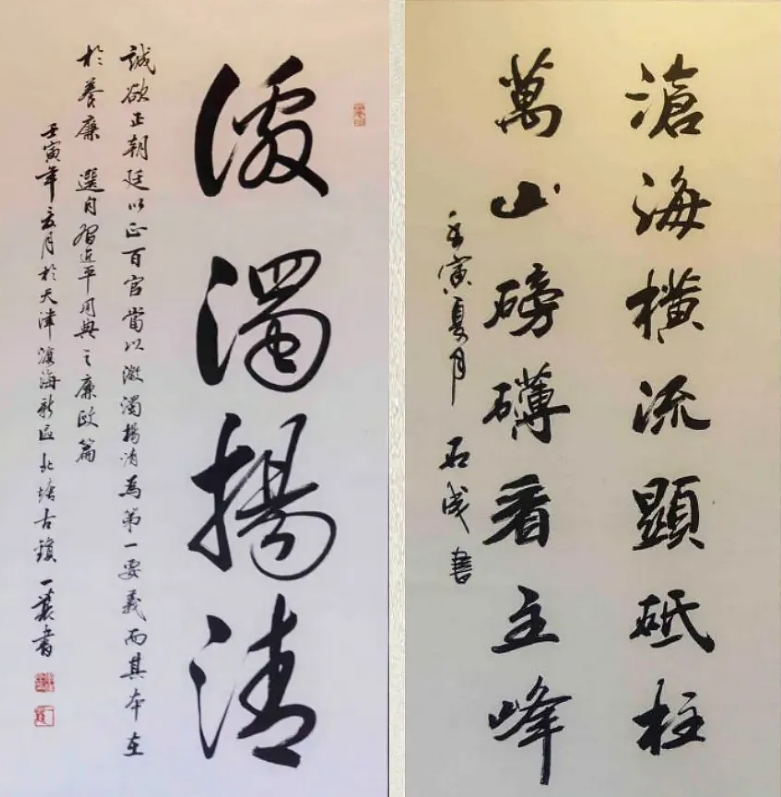 激濁揚清
誠欲正朝廷以正百官當以激濁揚清為第一要義而其本在
於養廉 選自習近平用典之廉政篇
壬寅年夏月於天津濱海新区北塘古鎮一書
滄海橫流顯砥柱
萬山磅礴看主峰
壬寅夏月 石成書